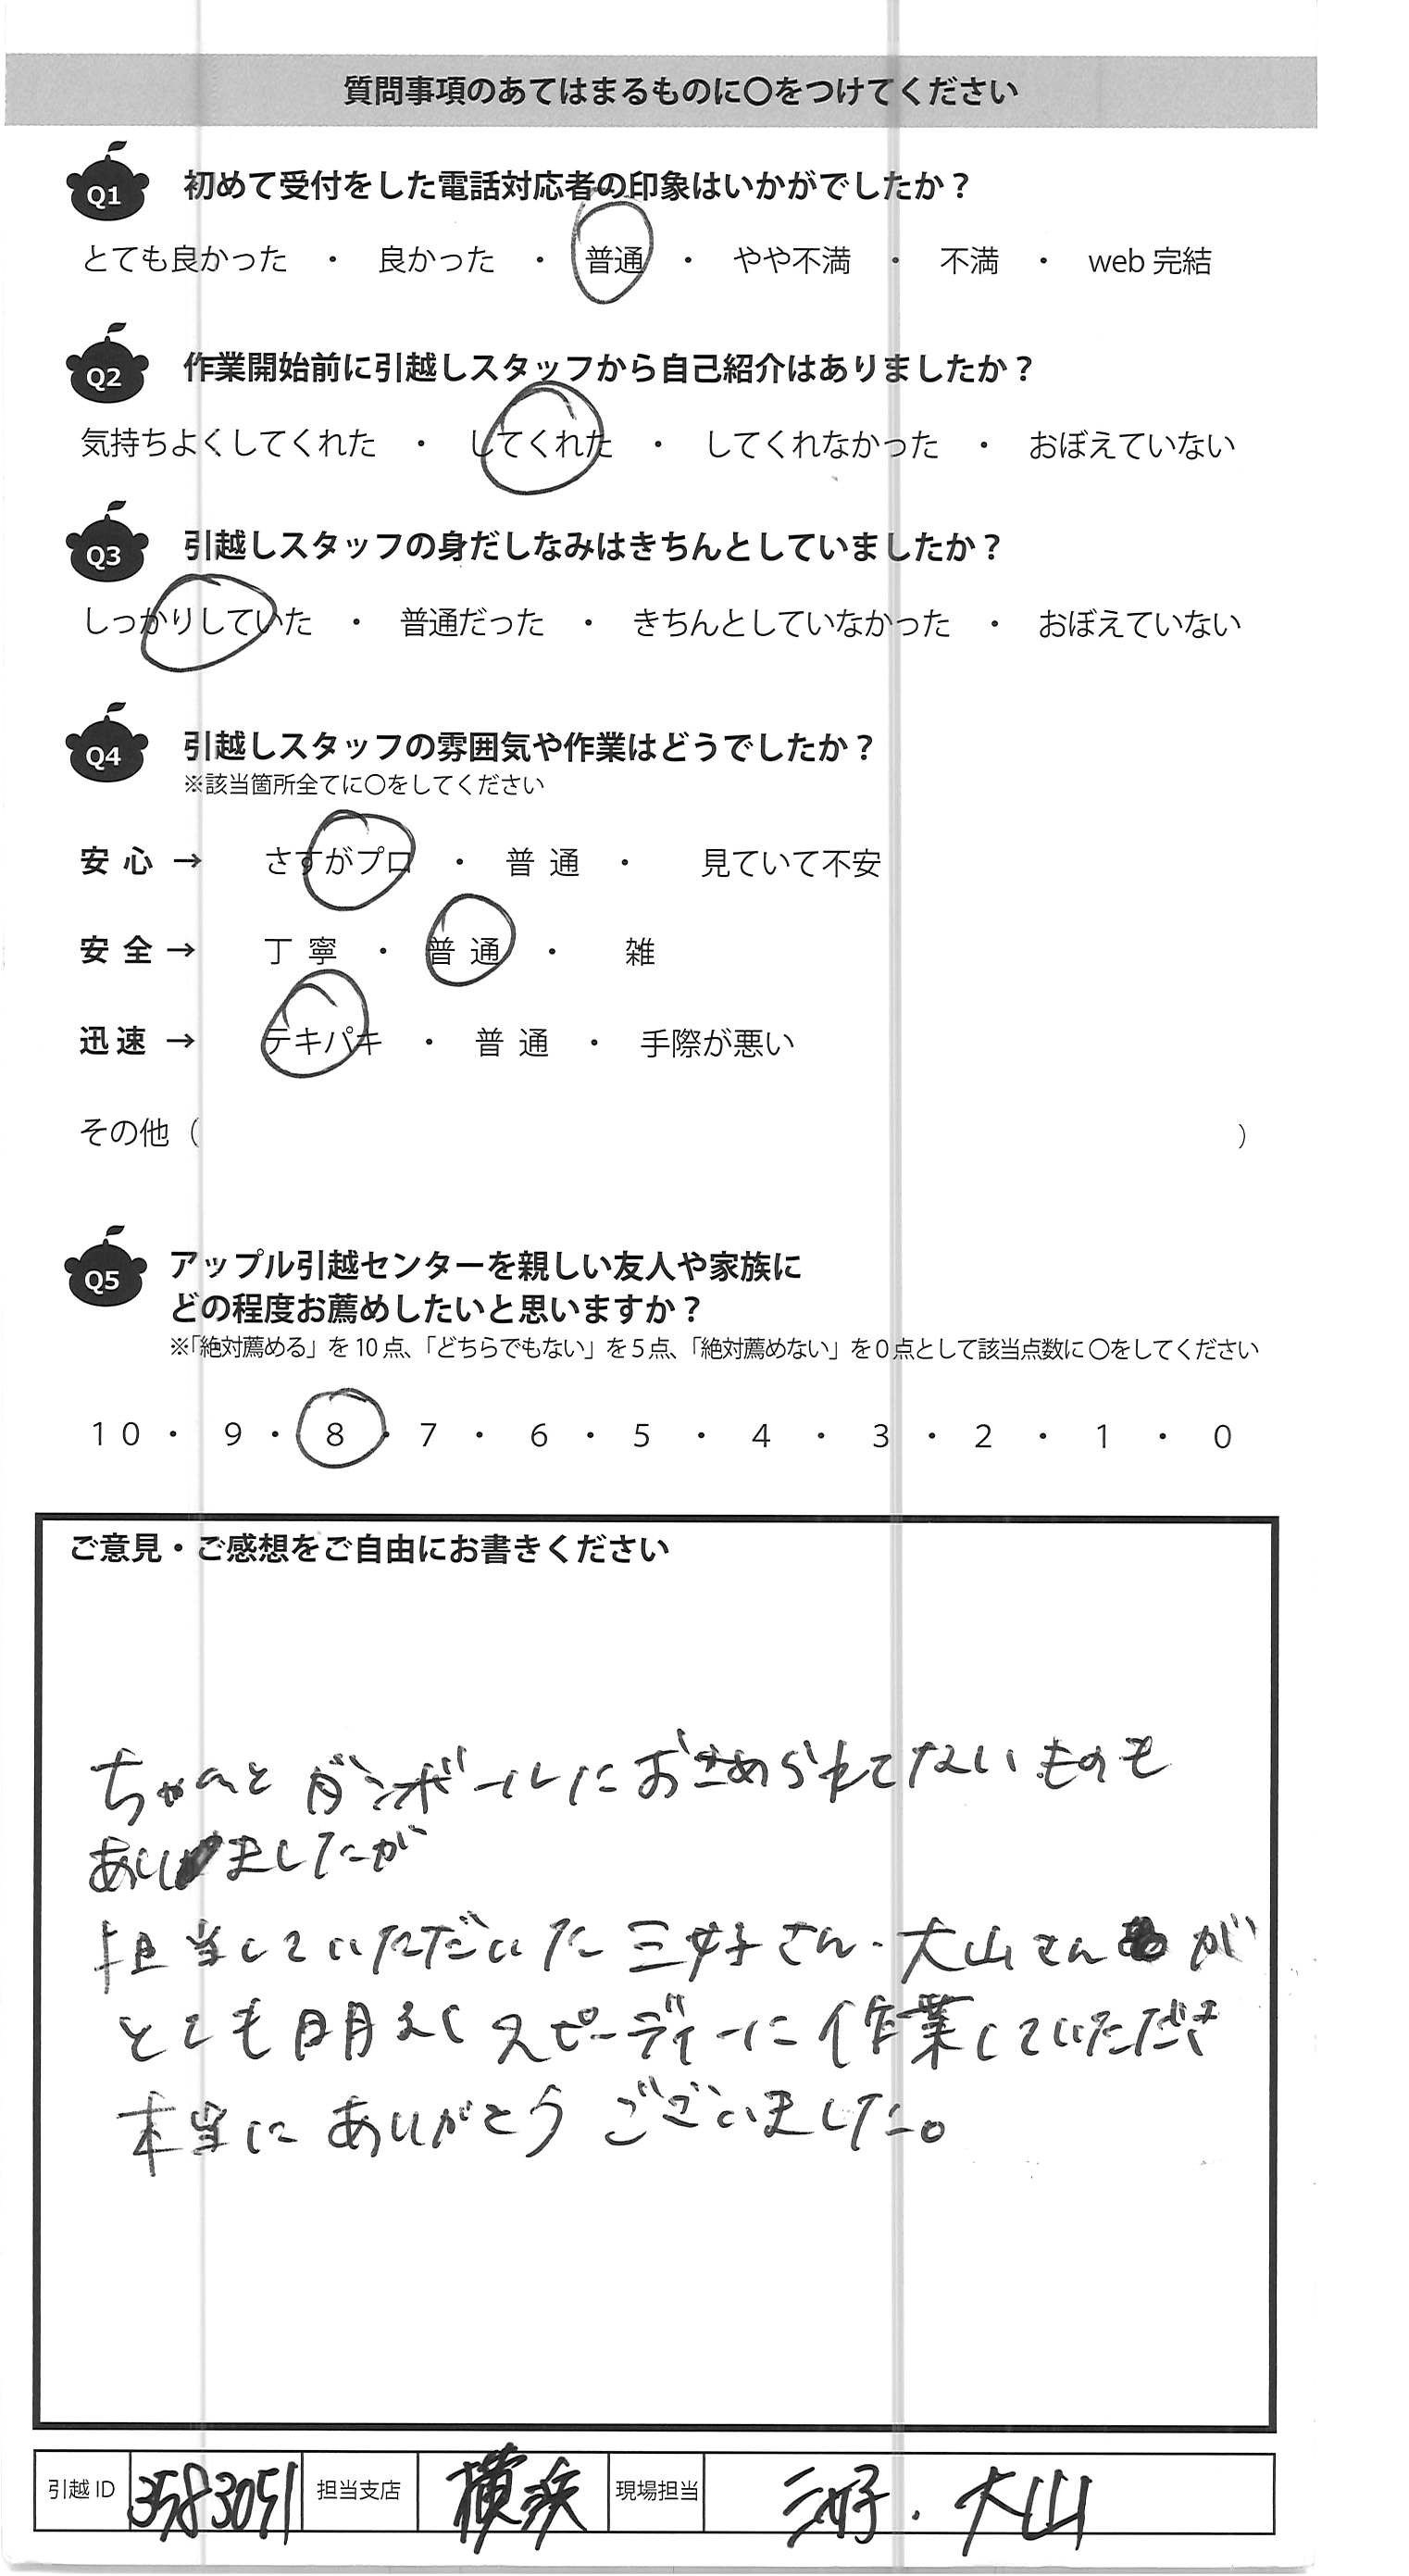 質問事項のあてはまるものに〇をつけてください
Q1 初めて受付をした電話対応者の印象はいかがでしたか？
とても良かった ・ 良かった ・ 普通 ・ やや不満 ・ 不満 ・ web完結
Q2 作業開始前に引越しスタッフから自己紹介はありましたか？
気持ちよくしてくれた ・ してくれた ・ してくれなかった ・ おぼえていない
Q3 引越しスタッフの身だしなみはきちんとしていましたか？
しっかりしていた ・ 普通だった ・ きちんとしていなかった ・ おぼえていない
Q4 引越しスタッフの雰囲気や作業はどうでしたか？
※該当箇所全てに〇をしてください
安心 → さすがプロ ・ 普通 ・ 見ていて不安
安全 → 丁寧 ・ 普通 ・ 雑
迅速 → テキパキ ・ 普通 ・ 手際が悪い
その他（ ）
Q5 アップル引越センターを親しい友人や家族に
どの程度お薦めしたいと思いますか？
※「絶対薦める」を10点、「どちらでもない」を5点、「絶対薦めない」を0点として該当点数に〇をしてください
10 ・ 9 ・ 8 ・ 7 ・ 6 ・ 5 ・ 4 ・ 3 ・ 2 ・ 1 ・ 0
ご意見・ご感想をご自由にお書きください
ちゃんとダンボールにおさめられてないものも
ありましたが
担当していただいた三好さん・大山さんが
とても明るくスピーディーに作業していただき
本当にありがとうございました。
引越ID 3583051 担当支店 横浜 現場担当 三好・大山